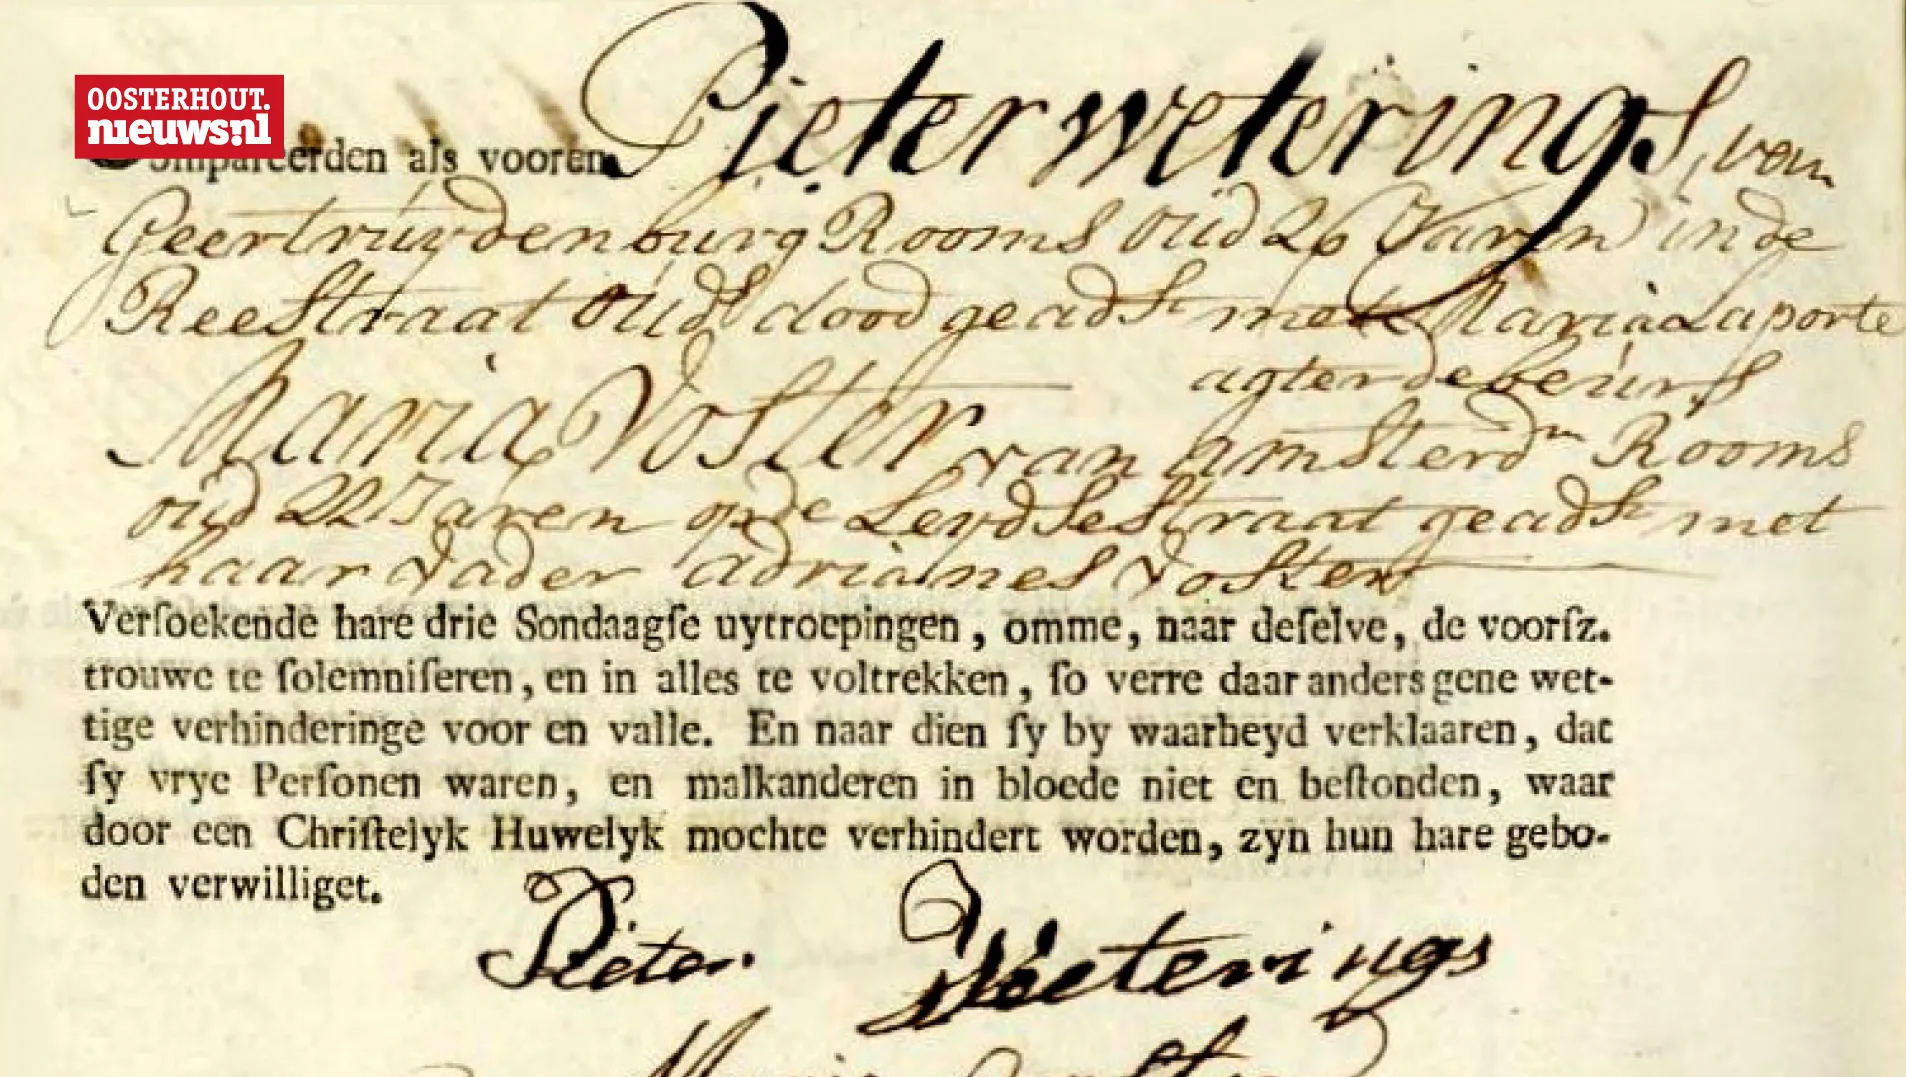 OOSTERHOUT.
nieuws.nl
Compareerden als vooren Pieter weterings, van
Geertruydenburg Rooms oud 26 Jaren in de
Reestraat ouds dood geadst met Maria Laporte
agter de beurs
Maria Voster van Amsterdm Rooms
oud 22 Jaren op de Leydsestraat geadst met
haar vader adrianes Voster
Verſoekende hare drie Sondaagſe uytroepingen, omme, naar deſelve, de voorſz.
trouwe te ſolemniſeren, en in alles te voltrekken, ſo verre daar anders gene wet-
tige verhinderinge voor en valle. En naar dien ſy by waarheyd verklaaren, dat
ſy vrye Perſonen waren, en malkanderen in bloede niet en beſtonden, waar
door een Chriſtelyk Huwelyk mochte verhindert worden, zyn hun hare gebo-
den verwilliget.
Pieter Weeterings
Maria